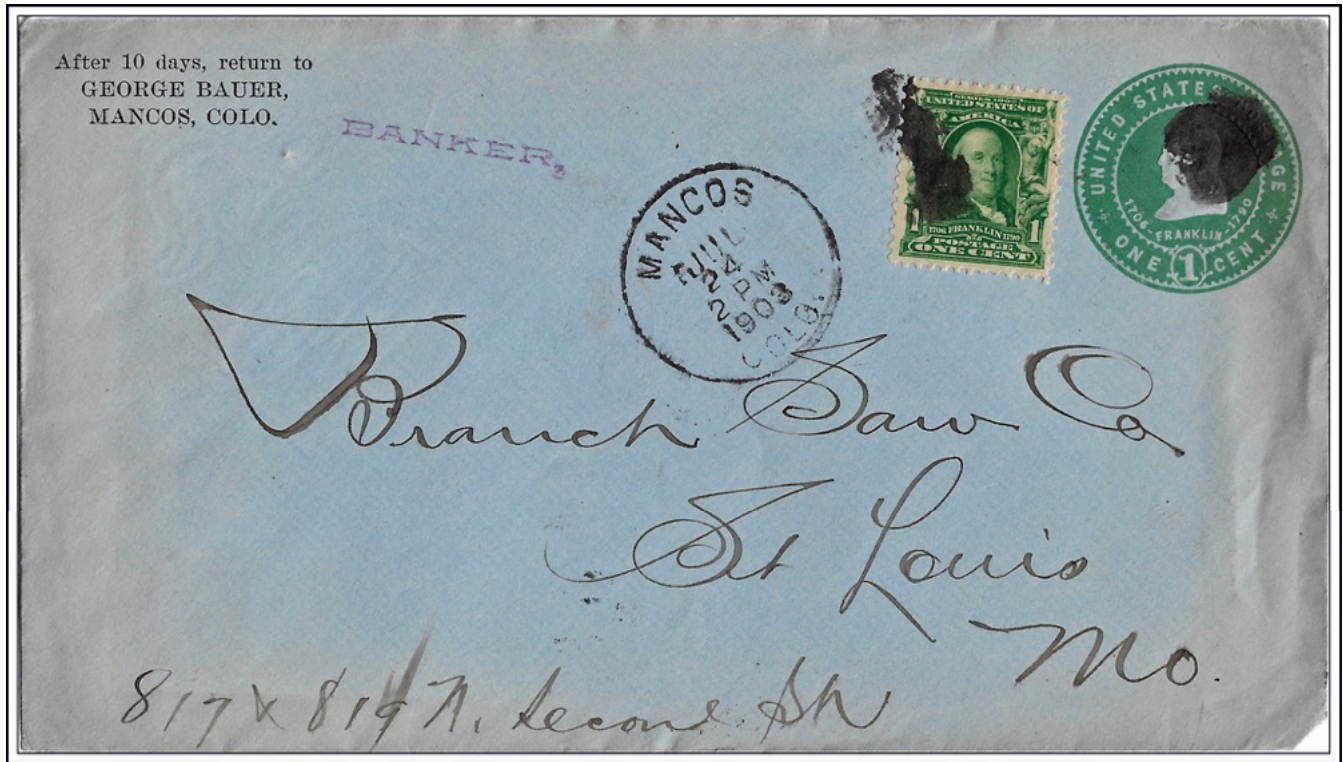 After 10 days, return to
GEORGE BAUER,
MANCOS, COLO.
BANKER,
MANCOS
JUL
24
2 PM
1903
COLO.
SERIES 1902
UNITED STATES OF
AMERICA
1706 FRANKLIN 1790
1 1
POSTAGE
ONE CENT
UNITED STATES POSTAGE
1706 FRANKLIN 1790
ONE 1 CENT
Branch Saw Co
St Louis
Mo.
817 & 819 N. Second St